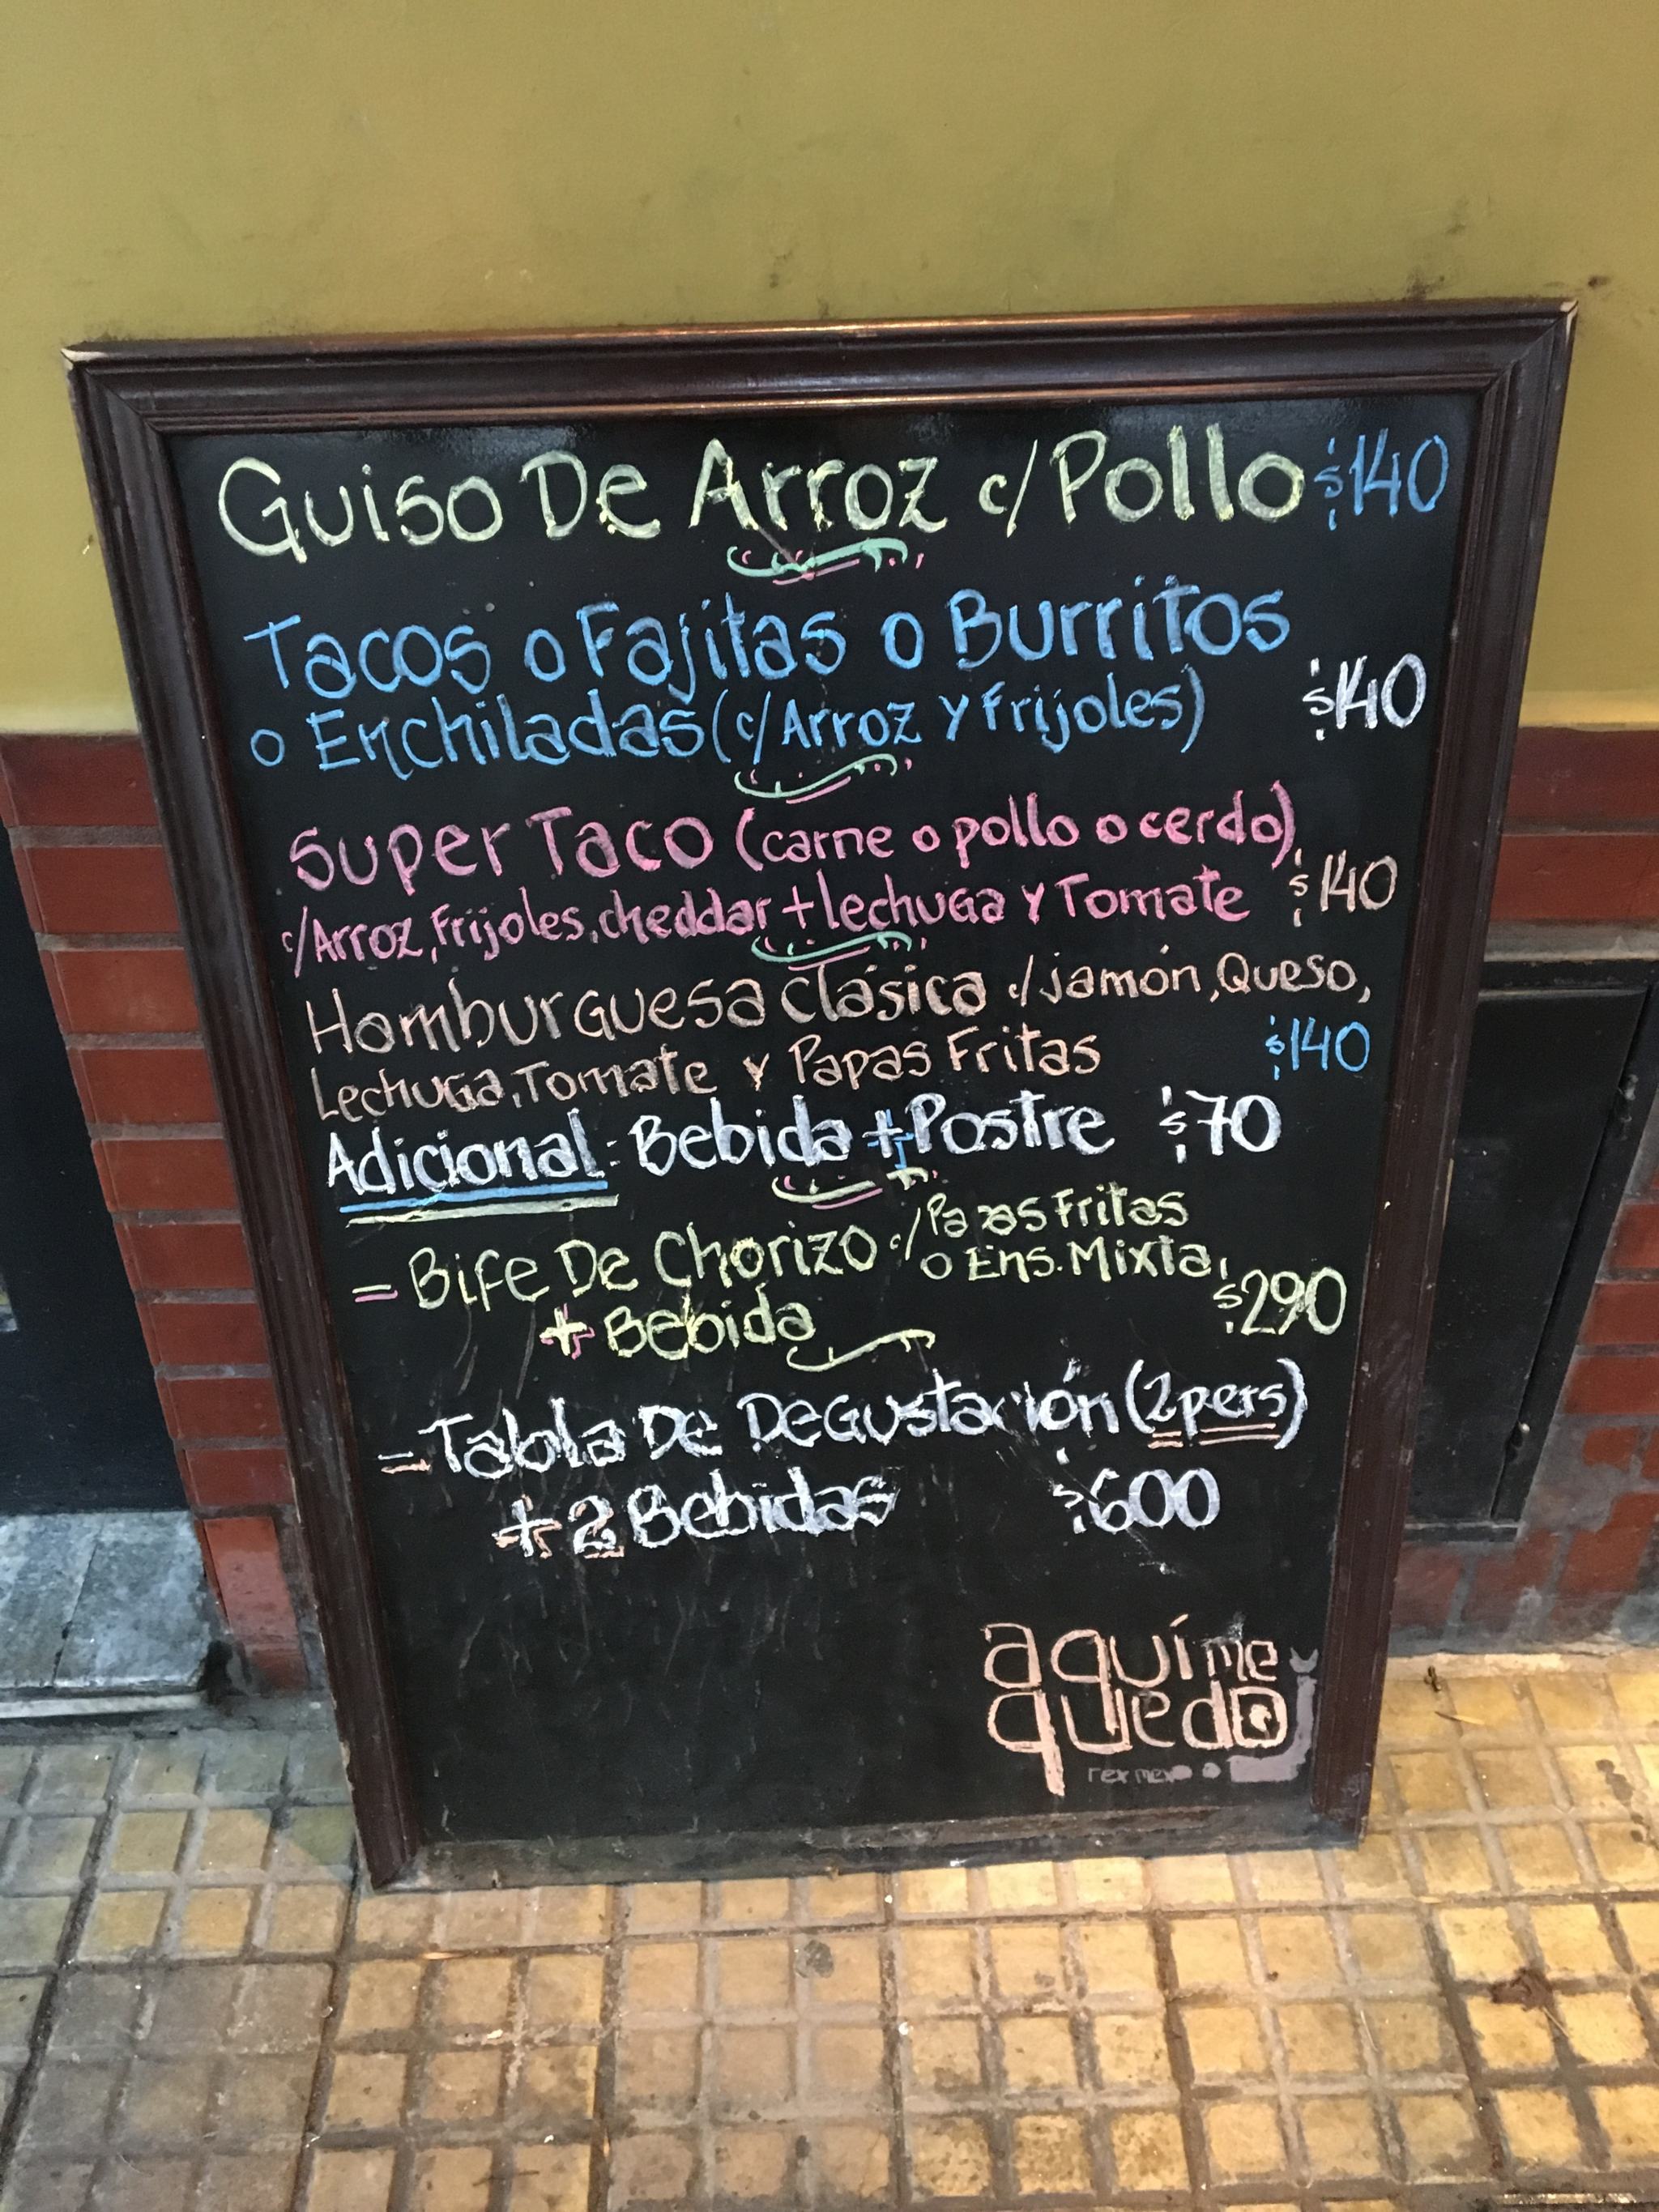 Guiso De Arroz c/Pollo $140
Tacos o Fajitas o Burritos
o Enchiladas (c/Arroz y frijoles) $140
Super Taco (carne o pollo o cerdo)
c/Arroz, frijoles, cheddar + lechuga y Tomate $140
Hamburguesa Clásica c/jamón, Queso,
Lechuga, Tomate y Papas Fritas $140
Adicional: Bebida + Postre $70
= Bife De Chorizo c/ Papas Fritas
o Ens. Mixta
+ Bebida $290
= Tabla De Degustación (2 pers)
+ 2 Bebidas $600
aquí me
quedo